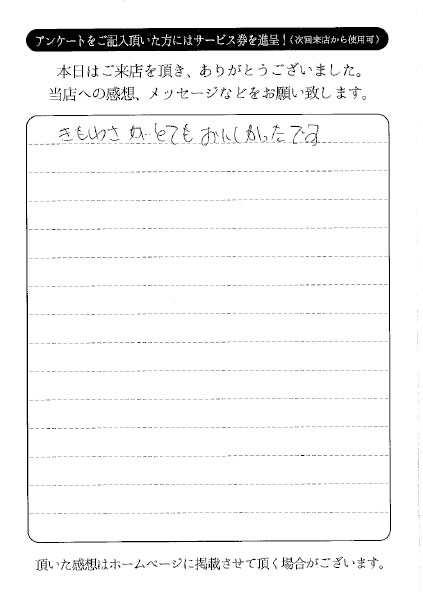 アンケートをご記入頂いた方にはサービス券を進呈！（次回来店から使用可）
本日はご来店を頂き、ありがとうございました。
当店への感想、メッセージなどをお願い致します。
きもわさ が とても おいしかったです
頂いた感想はホームページに掲載させて頂く場合がございます。